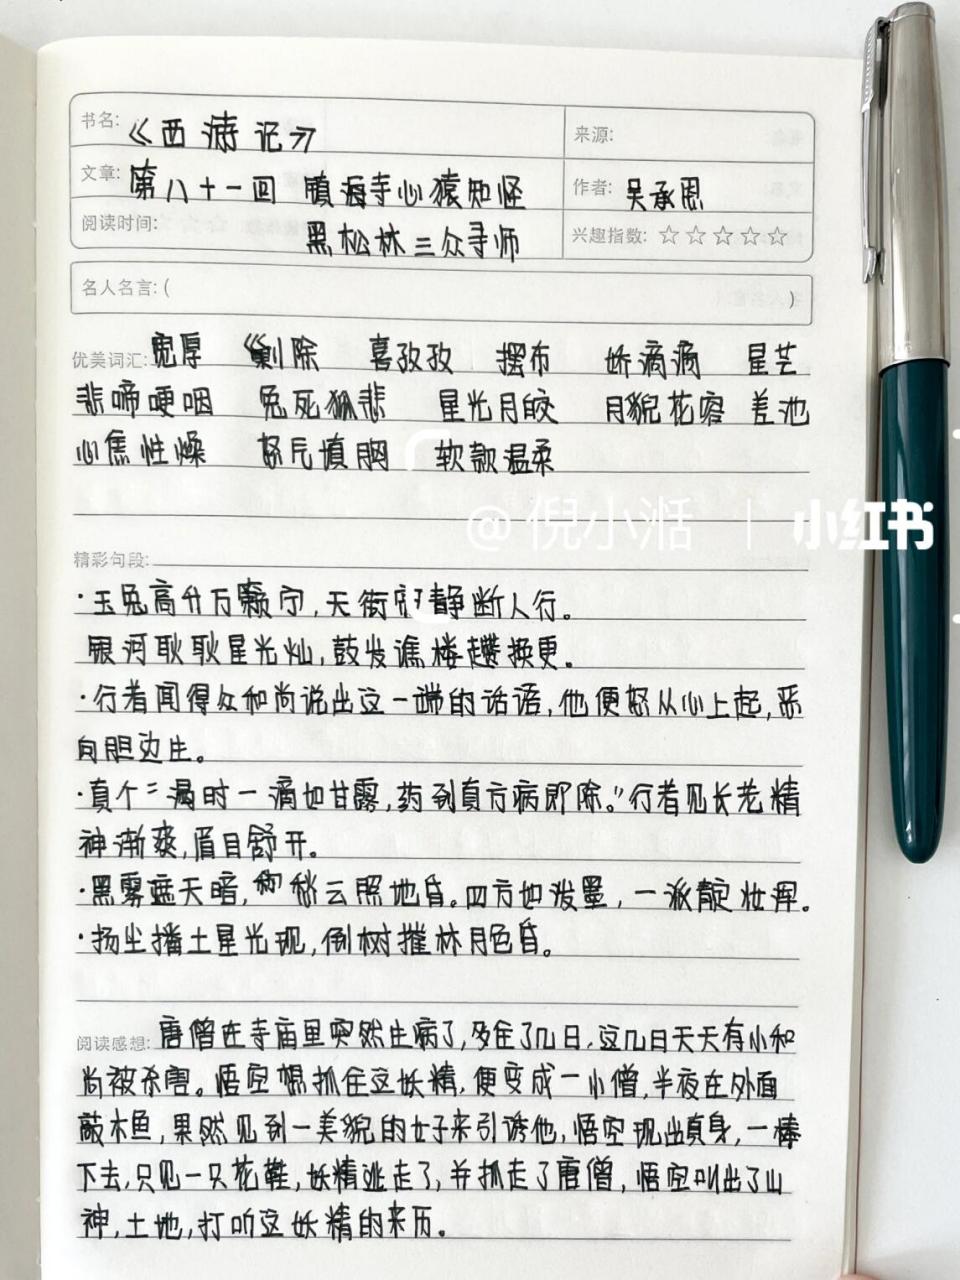 书名: 《西游记》
来源:
文章: 第八十一回 镇海寺心猿知怪
作者: 吴承恩
阅读时间: 黑松林三众寻师
兴趣指数: ☆☆☆☆☆
名人名言: ( )
优美词汇: 宽厚 剿除 喜孜孜 摆布 娇滴滴 星芒
悲啼哽咽 兔死狐悲 星光月皎 月貌花容 差池
心焦性燥 怒气填胸 软款温柔
@倪小湉 | 小红书
精彩句段:
·玉兔高升万籁宁,天街寂静断人行。
银河耿耿星光灿,鼓发谯楼趱换更。
·行者闻得众和尚说出这一端的话语,他便怒从心上起,恶
向胆边生。
·真个“漏时一滴如甘露,药到真方病即除。”行者见长老精
神渐爽,眉目舒开。
·黑雾遮天暗,愁云照地昏。四方如泼墨,一派靛妆浑。
·扬尘播土星光现,倒树摧林月色昏。
阅读感想: 唐僧在寺庙里突然生病了,多住了几日,这几日天天有小和
尚被杀害。悟空想抓住这妖精,便变成一小僧,半夜在外面
敲木鱼,果然见到一美貌的女子来引诱他,悟空现出真身,一棒
下去,只见一只花鞋,妖精逃走了,并抓走了唐僧,悟空叫出了山
神,土地,打听这妖精的来历。